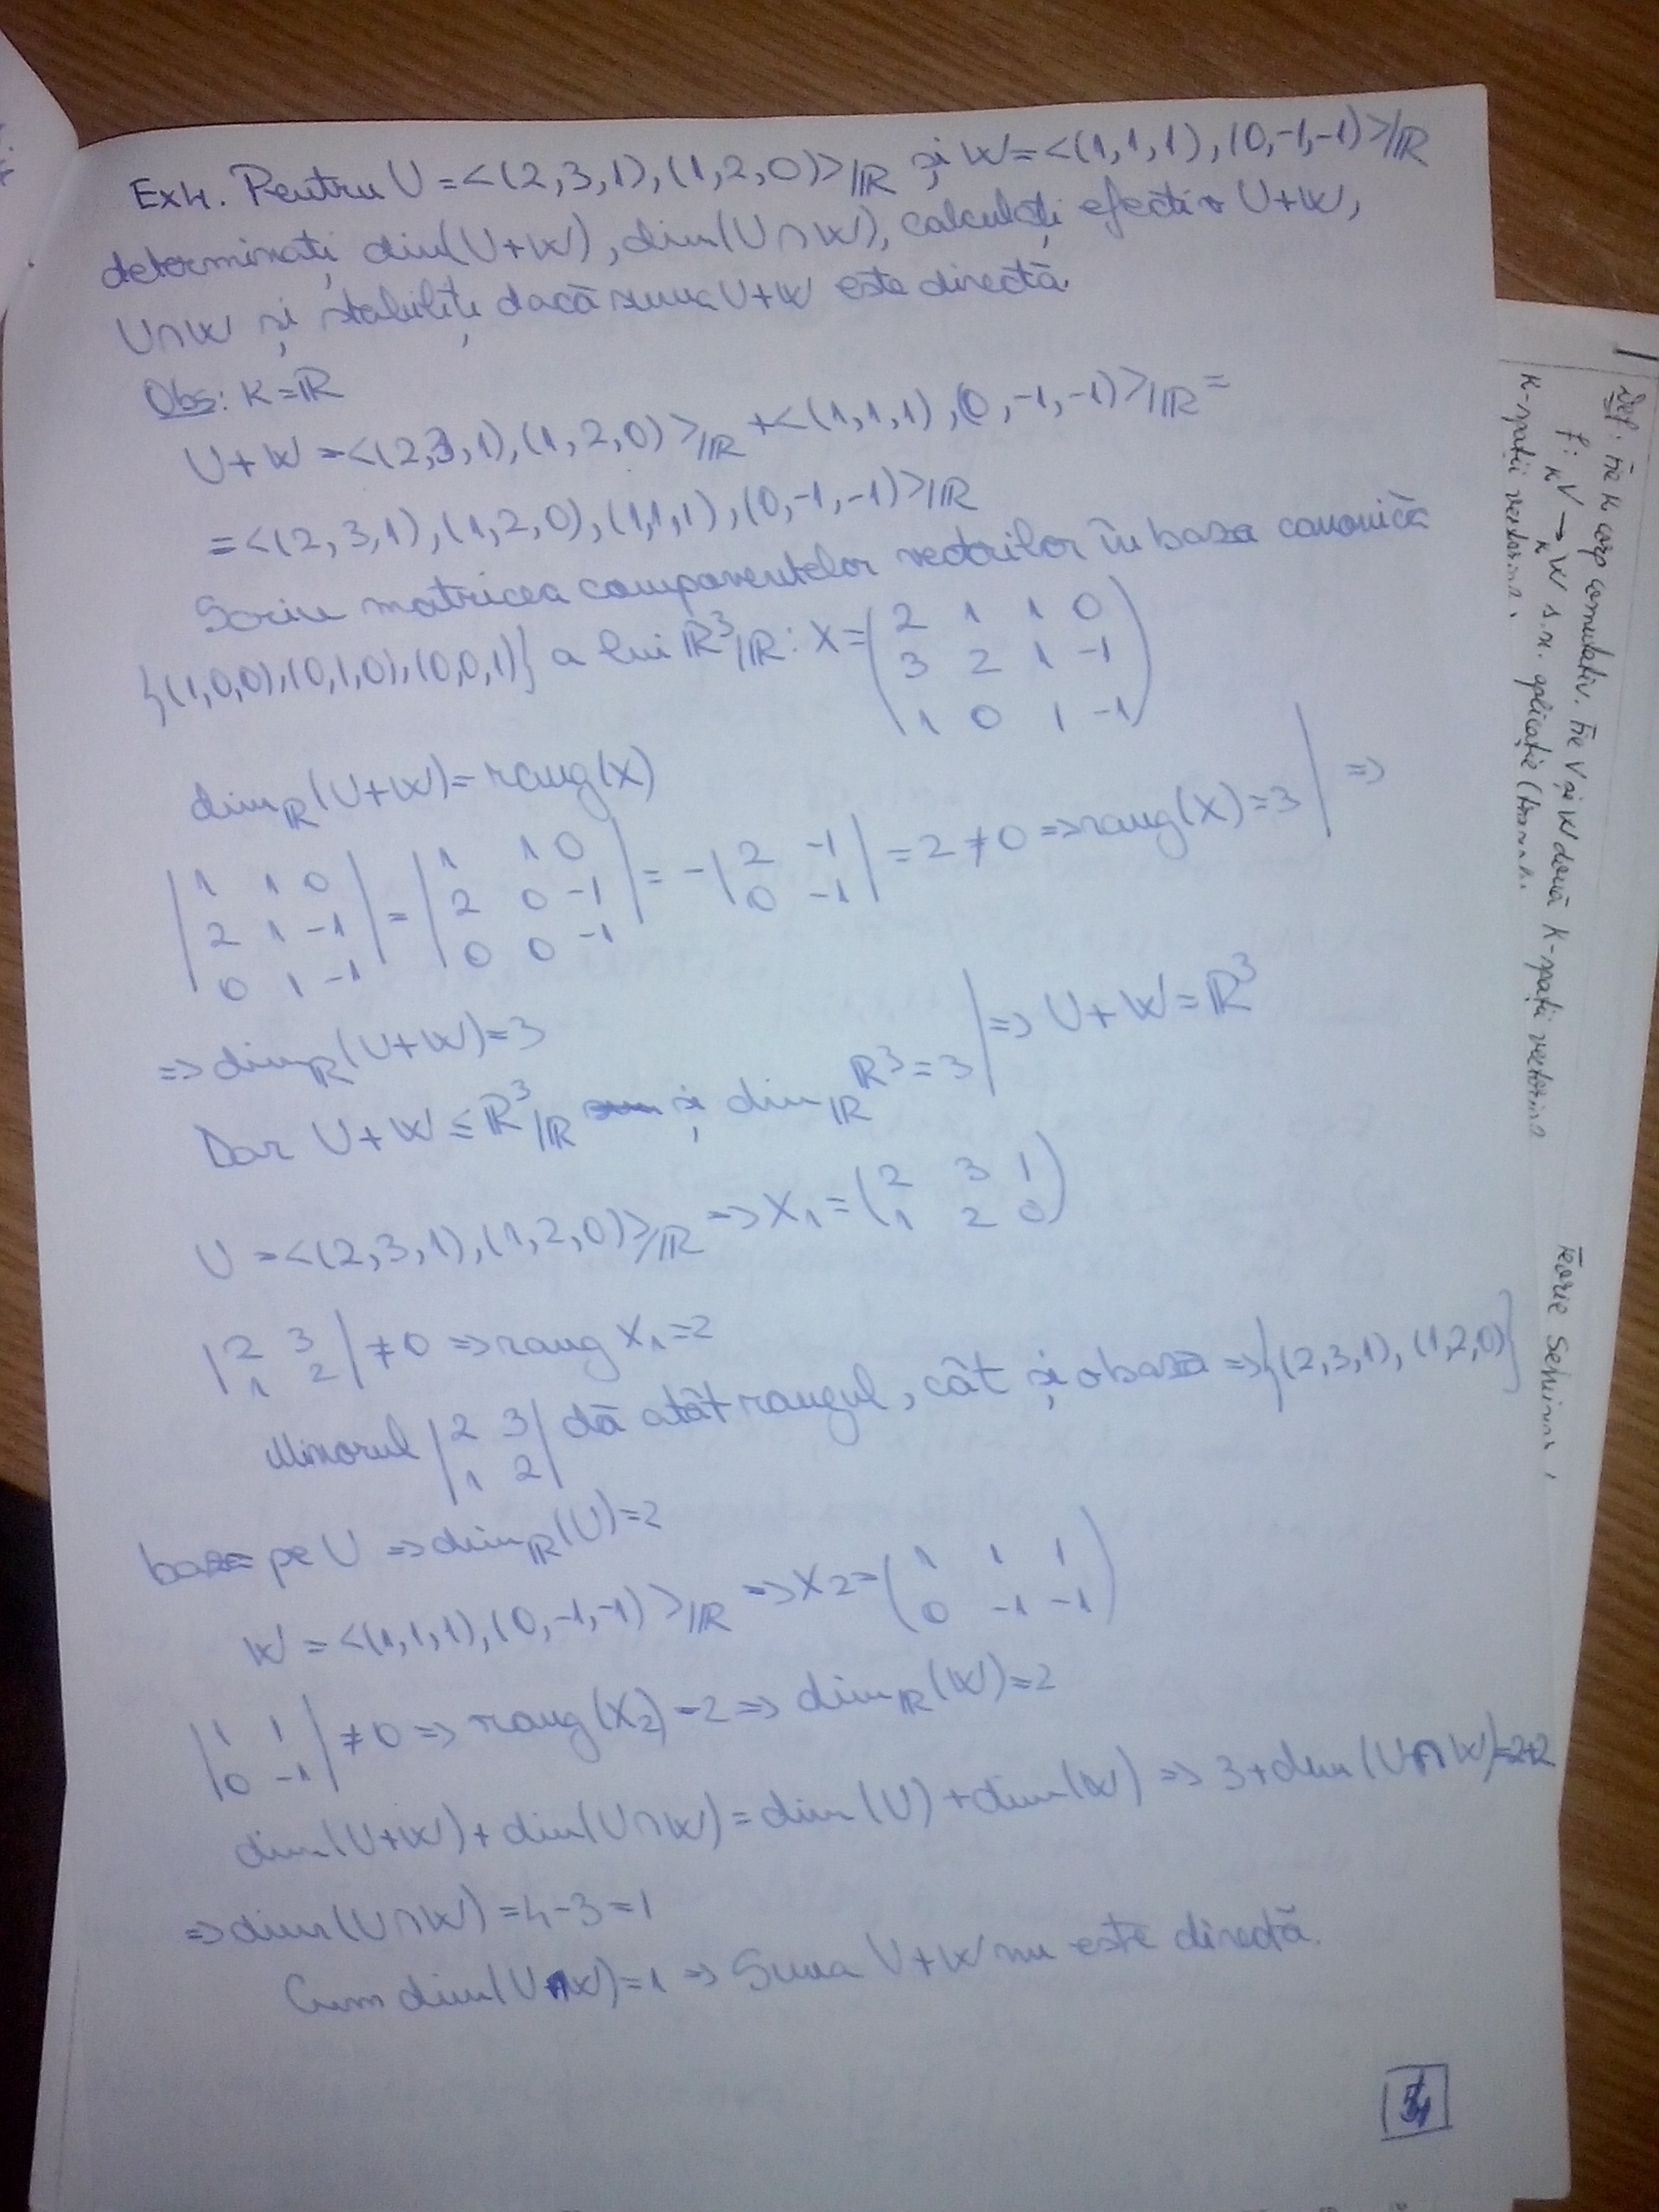 Ex4. Pentru U=<(2,3,1),(1,2,0)>/ℝ și W=<(1,1,1),(0,-1,-1)>/ℝ
determinați dim(U+W), dim(U∩W), calculați efectiv U+W,
U∩W și stabiliți dacă suma U+W este directă.
Obs: K=ℝ
U+W=<(2,3,1),(1,2,0)>/ℝ+<(1,1,1),(0,-1,-1)>/ℝ=
=<(2,3,1),(1,2,0),(1,1,1),(0,-1,-1)>/ℝ
Scriu matricea componentelor vectorilor în baza canonică
{(1,0,0),(0,1,0),(0,0,1)} a lui ℝ³/ℝ: X=(2 1 1 0
3 2 1 -1
1 0 1 -1)
dimℝ(U+W)=rang(X)
|1 1 0
2 1 -1
0 1 -1| = |1 1 0
2 0 -1
0 0 -1| = -|2 -1
0 -1| = 2≠0 => rang(X)=3 | =>
=> dimℝ(U+W)=3
Dar U+W ≤ ℝ³/ℝ și dimℝ ℝ³=3 | => U+W=ℝ³
U=<(2,3,1),(1,2,0)>/ℝ => X₁=(2 3 1
1 2 0)
|2 3
1 2| ≠0 => rang X₁=2
Minorul |2 3
1 2| dă atât rangul, cât și o baza => {(2,3,1),(1,2,0)}
baza pe U => dimℝ(U)=2
W=<(1,1,1),(0,-1,-1)>/ℝ => X₂=(1 1 1
0 -1 -1)
|1 1
0 -1| ≠0 => rang(X₂)=2 => dimℝ(W)=2
dim(U+W)+dim(U∩W)=dim(U)+dim(W) => 3+dim(U∩W)=2+2
=> dim(U∩W)=4-3=1
Cum dim(U∩W)=1 => Suma U+W nu este directă.
1
Def: Fie K corp comutativ. Fie V și W două K-spații vectoriale
f: ₖV → ₖW s.n. aplicație
K-spații vectoriale.
Teorie Seminar